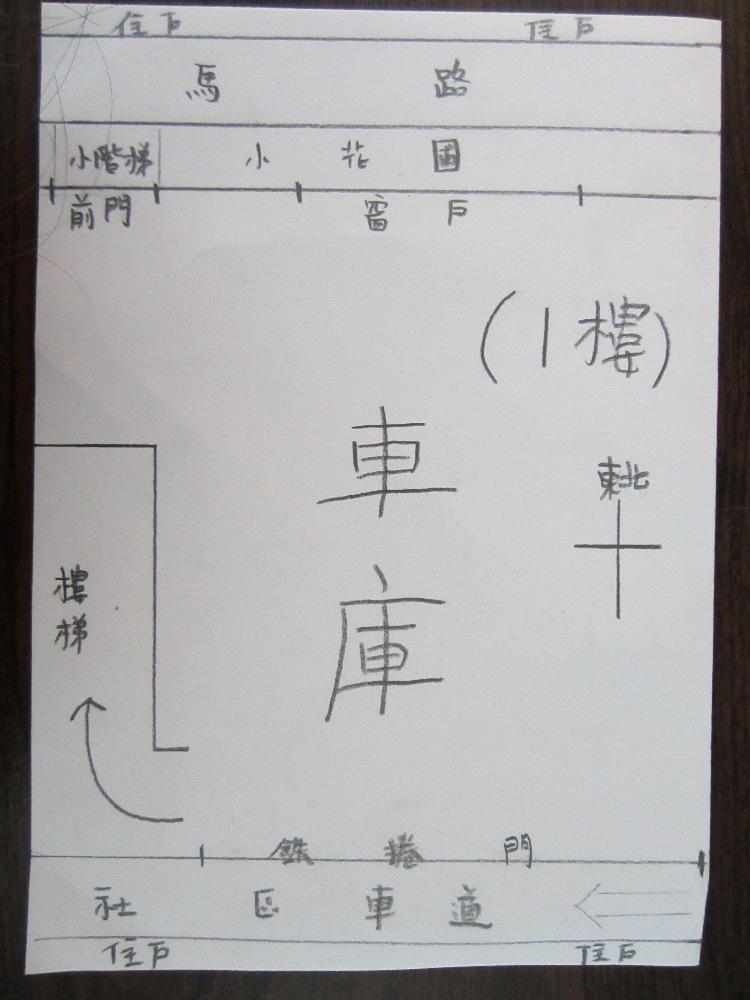 住戶 住戶
馬路
小階梯 小花圃
前門 窗戶
(1樓)
車庫
東北
樓梯
鉄捲門
社區車道
住戶 住戶